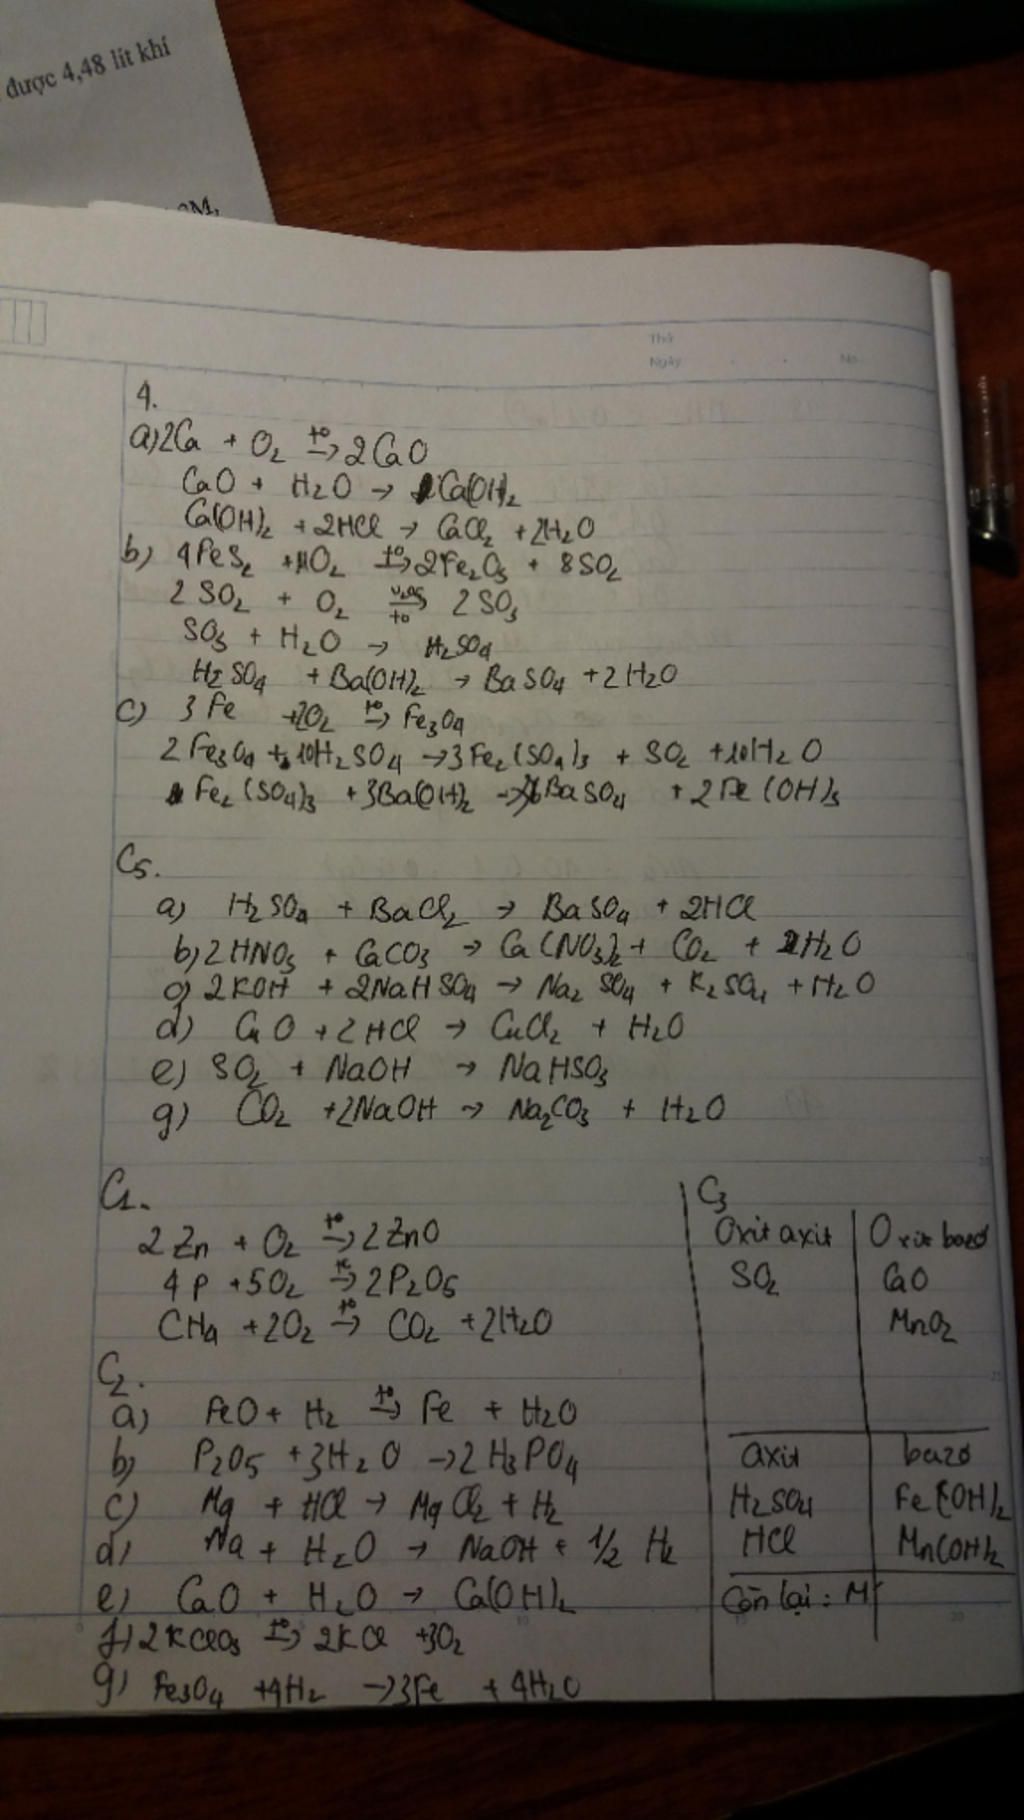 được 4,48 lít khí
Thứ
Ngày No
4.
a) 2Ca + O2 t°→ 2CaO
CaO + H2O → Ca(OH)2
Ca(OH)2 + 2HCl → CaCl2 + 2H2O
b) 4FeS2 + 11O2 t°→ 2Fe2O3 + 8SO2
2SO2 + O2 V2O5→t° 2SO3
SO3 + H2O → H2SO4
H2SO4 + Ba(OH)2 → BaSO4 + 2H2O
c) 3Fe + 2O2 t°→ Fe3O4
2Fe3O4 + 10H2SO4 → 3Fe2(SO4)3 + SO2 + 10H2O
Fe2(SO4)3 + 3Ba(OH)2 → BaSO4 + 2Fe(OH)3
C5.
a) H2SO4 + BaCl2 → BaSO4 + 2HCl
b) 2HNO3 + CaCO3 → Ca(NO3)2 + CO2 + H2O
c) 2KOH + 2NaHSO4 → Na2SO4 + K2SO4 + H2O
d) CuO + 2HCl → CuCl2 + H2O
e) SO2 + NaOH → NaHSO3
g) CO2 + 2NaOH → Na2CO3 + H2O
C1.
2Zn + O2 t°→ 2ZnO
4P + 5O2 t°→ 2P2O5
CH4 + 2O2 t°→ CO2 + 2H2O
C2.
a) FeO + H2 t°→ Fe + H2O
b) P2O5 + 3H2O → 2H3PO4
c) Mg + HCl → MgCl2 + H2
d) Na + H2O → NaOH + 1/2 H2
e) CaO + H2O → Ca(OH)2
f) 2KClO3 t°→ 2KCl + 3O2
g) Fe3O4 + 4H2 → 3Fe + 4H2O
C3
Oxit axit Oxit bazơ
SO2 CaO
MnO2
axit bazơ
H2SO4 Fe(OH)2
HCl Mn(OH)2
Còn lại: M